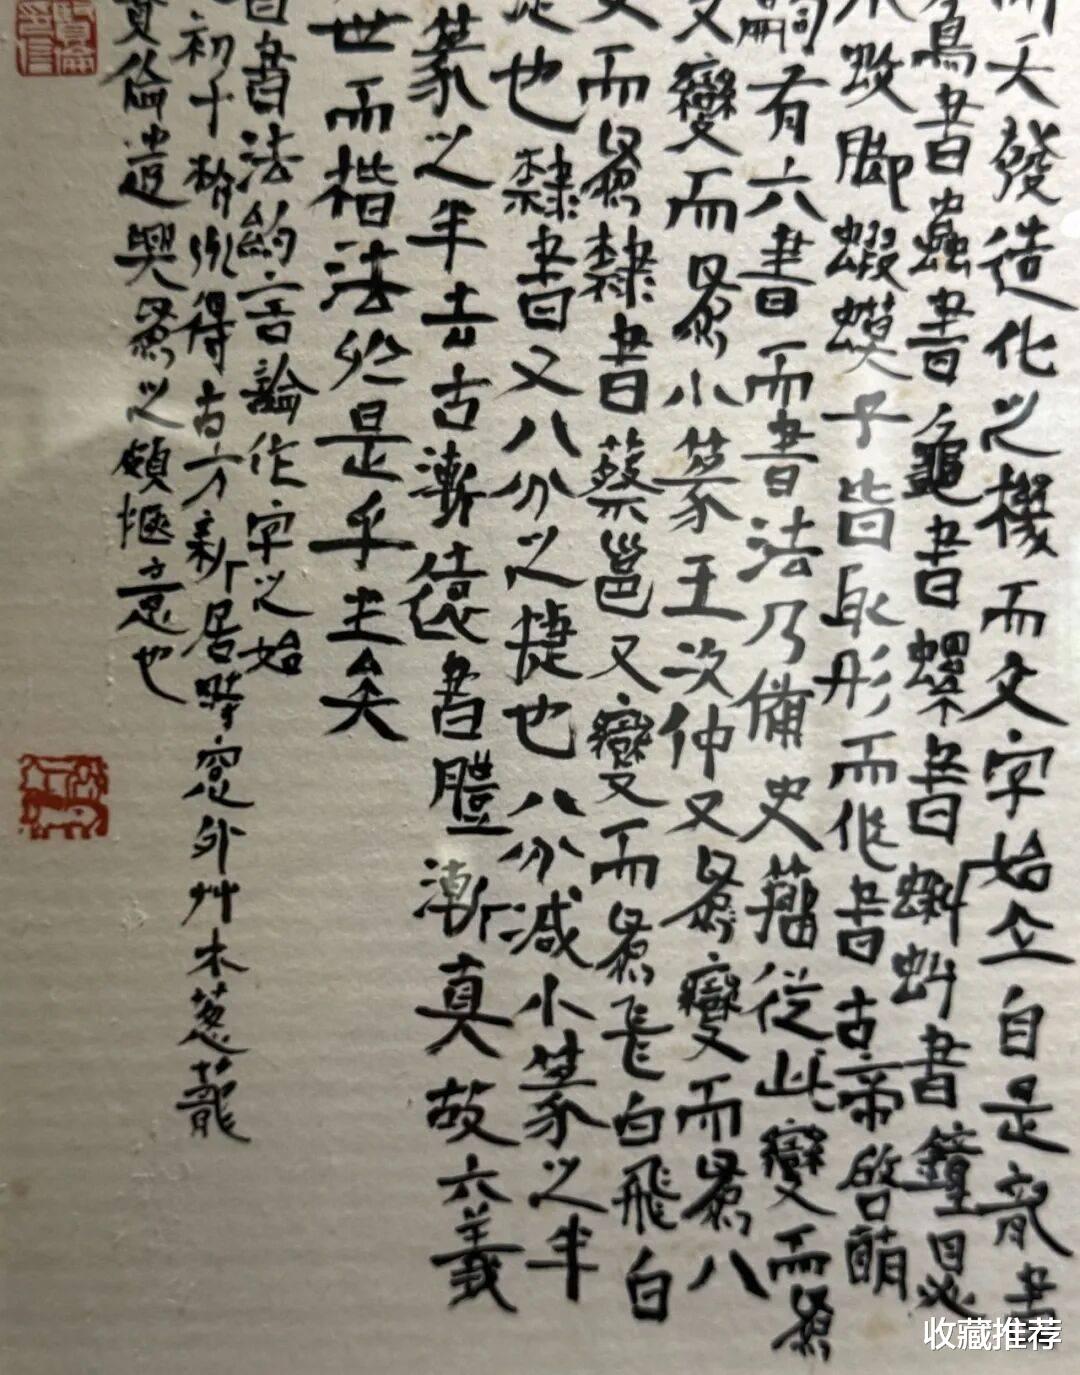 天發造化之機而文字始立自是龍書
書蟲書龜書螺書蝌蚪書鐘
蚁脚蝦蟆子皆取形而作書古帝啓萌
嗣有六書而書法乃備史籀從此變而爲
又變而爲小篆王次仲又爲變而爲八
又而爲隸書蔡邕又變而爲飛白飛白
也隸書又八分之捷也八分減小篆之半
篆之半去古漸遠書體漸真故六義
世而楷法於是乎生矣
書法約言論作字之始
初十於得古方新居窓外艸木葱蘢
賢倫遣興爲之頗愜意也
收藏推荐